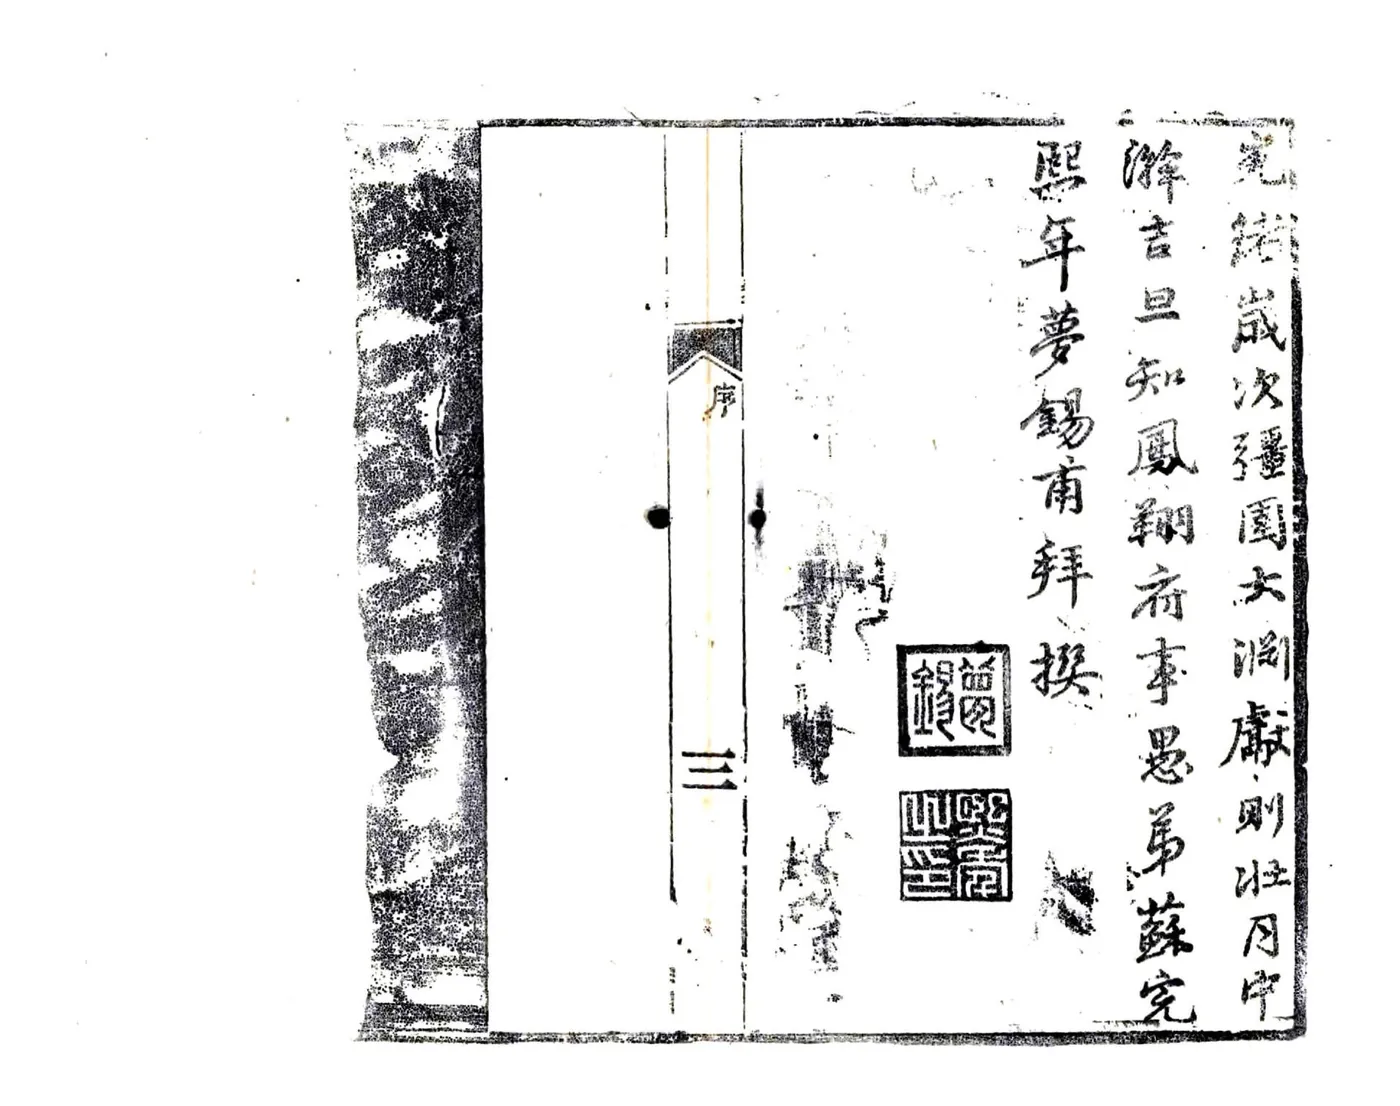 光緒歲次彊圉大淵獻則壯月中
澣吉旦知鳳翔府事愚弟蘇完
熙年夢錫甫拜撰
夢錫
熙年之印
序
三